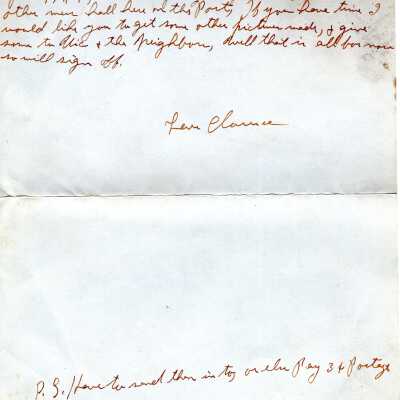 other mess hall here on the Post, If you have time I
would like you to get some other pictures made, & give
some to & the Neighbors, well that is all for now
so will sign off.
Love Clarence
P.S. Have to send them in to or else Pay 3¢ Postage